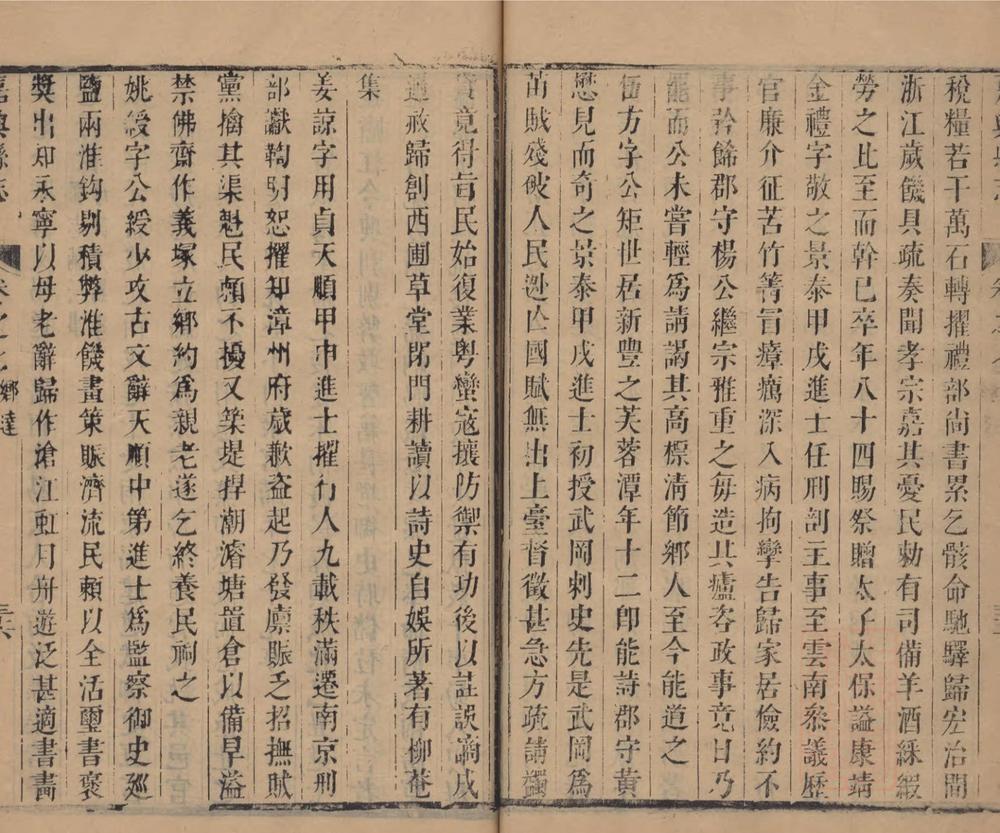 稅糧若干萬石轉擢禮部尚書累乞骸命馳驛歸宏治間
浙江歲饑具疏奏聞孝宗嘉其憂民勅有司備羊酒綵緞
勞之比至而幹已卒年八十四賜祭贈太子太保謚康靖
金禮字敬之景泰甲戌進士任刑部主事至雲南叅議歷
官廉介征苦竹箐冒瘴癘深入病拘攣告歸家居儉約不
事幹餙郡守楊公繼宗雅重之每造其廬咨政事竟日乃
罷而公未嘗輕爲請謁其高標清節鄉人至今能道之
伍方字公矩世居新豐之芙蓉潭年十二卽能詩郡守黃
懋見而奇之景泰甲戌進士初授武岡刺史先是武岡爲
苗賊殘破人民逊亾國賦無出上臺督徵甚急方疏請蠲
貸竟得旨民始復業粤蠻寇攘防禦有功後以詿誤謫戍
遇赦歸創西圃草堂閉門耕讀以詩史自娛所著有柳菴
集
姜諒字用貞天順甲申進士擢行人九載秩滿遷南京刑
部讞鞫明恕擢知漳州府歲歉盗起乃發廪賑乏招撫賊
黨擒其渠魁民頼不擾又築堤捍潮濬塘置倉以備旱溢
禁佛齋作義塚立鄉約爲親老遂乞終養民祠之
姚綬字公綬少攻古文辭天順中第進士爲監察御史廵
鹽兩淮鈎剔積弊淮饑畫策賑濟流民頼以全活璽書褒
奬出知永寧以母老辭歸作滄江虹月舟遊泛甚適書畵
嘉興縣志
卷之七
鄉達
三六